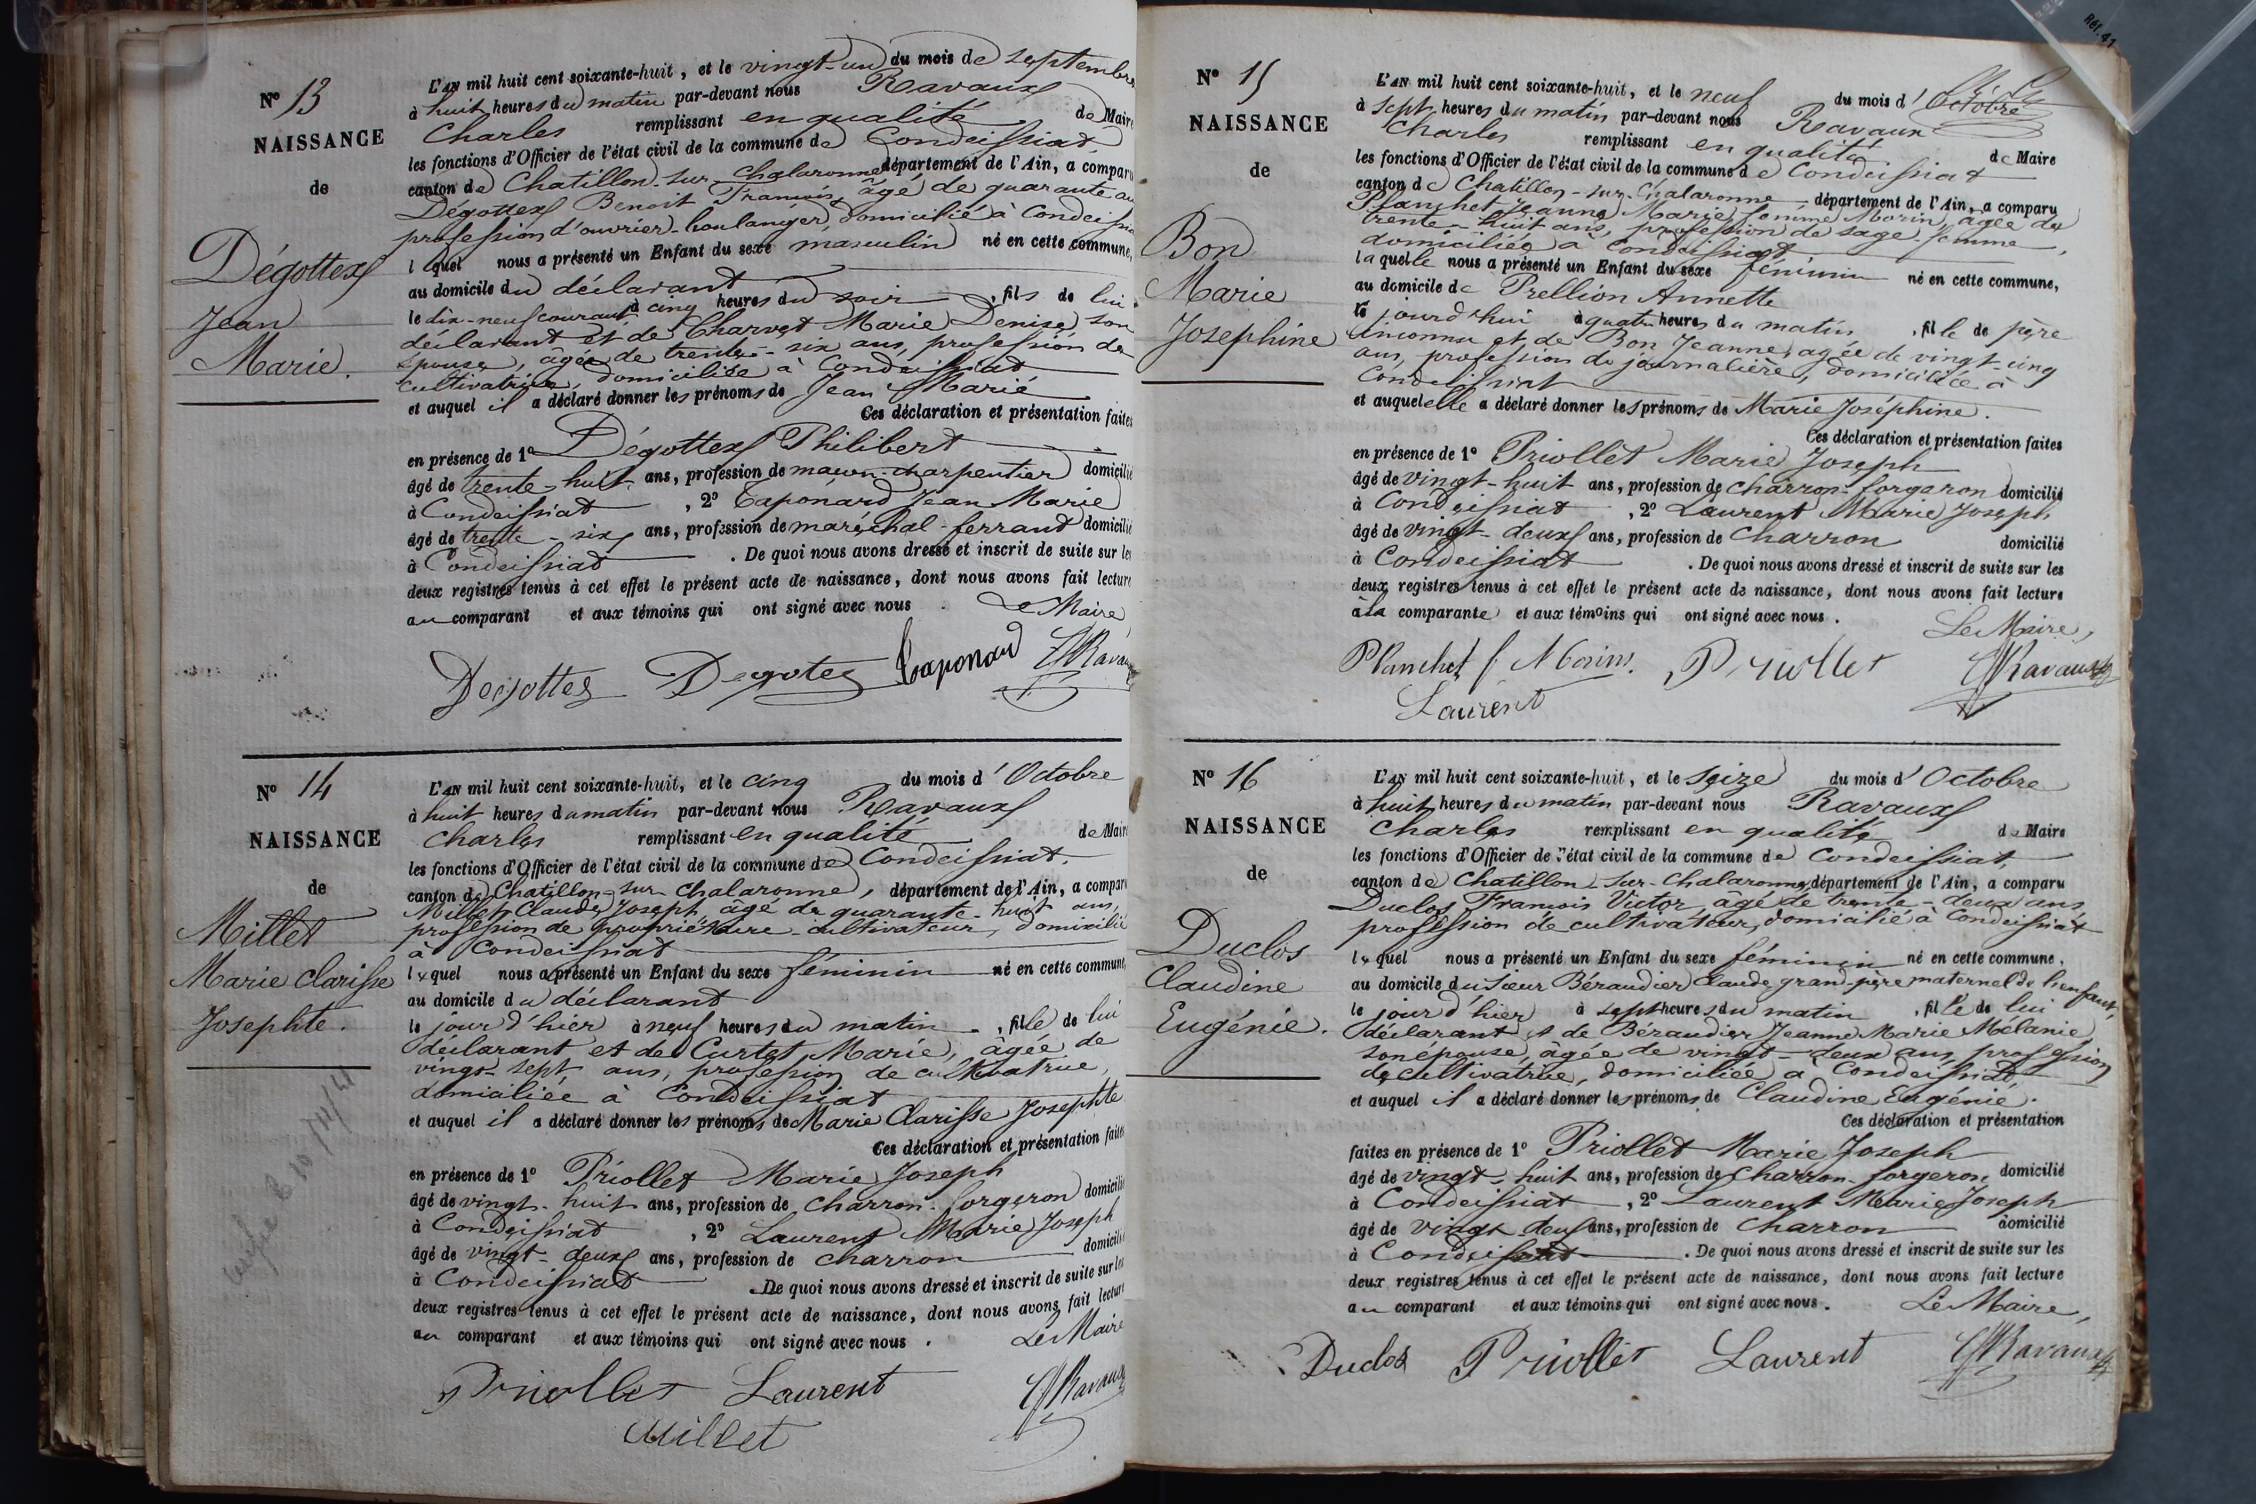 Réf. 41
N° 13
NAISSANCE
de
Dégottex
Jean
Marie.
L'AN mil huit cent soixante-huit, et le vingt-un du mois de septembre
à huit heures du matin par-devant nous Ravaux
Charles remplissant en qualité de Maire
les fonctions d'Officier de l'état civil de la commune de Condeissiat,
canton de Chatillon-sur-Chalaronne département de l'Ain, a comparu
Dégottex Benoit François, âgé de quarante
profession d'ouvrier-boulanger, domicilié à Condeissia
lequel nous a présenté un Enfant du sexe masculin né en cette commune,
au domicile du déclarant
le dix-neuf courant à cinq heures du soir, fils de lui
déclarant et de Charvet Marie Denise, son
épouse, âgée de trente-six ans, profession de
cultivatrice, domiciliée à Condeissiat
et auquel il a déclaré donner les prénoms de Jean Marie
Ces déclaration et présentation faites
en présence de 1° Dégottex Philibert
âgé de trente-huit ans, profession de maçon-charpentier domicilié
à Condeissiat, 2° Taponard Jean Marie
âgé de trente-six ans, profession de maréchal-ferrand domicilié
à Condeissiat. De quoi nous avons dressé et inscrit de suite sur les
deux registres tenus à cet effet le présent acte de naissance, dont nous avons fait lecture
au comparant et aux témoins qui ont signé avec nous. Le Maire,
Degottex Degotex Taponard Ravaux
N° 14
NAISSANCE
de
Millet
Marie Clarisse
Josephte.
L'AN mil huit cent soixante-huit, et le cinq du mois d'Octobre
à huit heures du matin par-devant nous Ravaux
Charles remplissant en qualité de Maire
les fonctions d'Officier de l'état civil de la commune de Condeissiat,
canton de Chatillon-sur-Chalaronne, département de l'Ain, a comparu
Millet Claude Joseph âgé de quarante-huit ans,
profession de propriétaire-cultivateur, domicilié
à Condeissiat
lequel nous a présenté un Enfant du sexe féminin né en cette commune,
au domicile du déclarant
le jour d'hier à neuf heures du matin, fille de lui
déclarant et de Curtet Marie, âgée de
vingt-sept ans, profession de cultivatrice,
domiciliée à Condeissiat
et auquel il a déclaré donner les prénoms de Marie Clarisse Josephte
Ces déclaration et présentation faites
en présence de 1° Priollet Marie Joseph
âgé de vingt-huit ans, profession de charron-forgeron domicilié
à Condeissiat, 2° Laurent Marie Joseph
âgé de vingt-deux ans, profession de charron domicilié
à Condeissiat. De quoi nous avons dressé et inscrit de suite sur les
deux registres tenus à cet effet le présent acte de naissance, dont nous avons fait lecture
au comparant et aux témoins qui ont signé avec nous. Le Maire
Priollet Laurent Ravaux
Millet
N° 15
NAISSANCE
de
Bon
Marie
Josephine
L'AN mil huit cent soixante-huit, et le neuf du mois d'Octobre
à sept heures du matin par-devant nous Ravaux
Charles remplissant en qualité de Maire
les fonctions d'Officier de l'état civil de la commune de Condeissiat
canton de Chatillon-sur-Chalaronne, département de l'Ain, a comparu
Planchet Jeanne Marie femme Morin, âgée de
trente-huit ans, profession de sage-femme,
domiciliée à Condeissiat
laquelle nous a présenté un Enfant du sexe féminin né en cette commune,
au domicile de Prellion Annette
le jourd'hui à quatre heures du matin, fille de père
inconnu et de Bon Jeanne, agée de vingt-cinq
ans, profession de journalière, domiciliée à
Condeissiat
et auquel elle a déclaré donner les prénoms de Marie Joséphine.
Ces déclaration et présentation faites
en présence de 1° Priollet Marie Joseph
âgé de vingt-huit ans, profession de charron-forgeron domicilié
à Condeissiat, 2° Laurent Marie Joseph
âgé de vingt-deux ans, profession de Charron domicilié
à Condeissiat. De quoi nous avons dressé et inscrit de suite sur les
deux registres tenus à cet effet le présent acte de naissance, dont nous avons fait lecture
à la comparante et aux témoins qui ont signé avec nous.
Le Maire,
Planchet f Morin. Priollet Ravaux
Laurent
N° 16
NAISSANCE
de
Duclos
Claudine
Eugénie.
L'AN mil huit cent soixante-huit, et le seize du mois d'Octobre
à huit heures du matin par-devant nous Ravaux
Charles remplissant en qualité de Maire
les fonctions d'Officier de l'état civil de la commune de Condeissiat,
canton de Chatillon-sur-Chalaronne, département de l'Ain, a comparu
Duclos François Victor, agé de trente-deux ans,
profession de cultivateur, domicilié à Condeissiat
lequel nous a présenté un Enfant du sexe féminin né en cette commune,
au domicile du sieur Béraudier Claude, grand-père maternel de l'enfant,
le jour d'hier à sept heures du matin, fille de lui
déclarant et de Béraudier Jeanne Marie Mélanie,
son épouse, âgée de vingt-deux ans, profession
de cultivatrice, domiciliée à Condeissiat
et auquel il a déclaré donner les prénoms de Claudine Eugénie.
Ces déclaration et présentation
faites en présence de 1° Priollet Marie Joseph
âgé de vingt-huit ans, profession de charron-forgeron, domicilié
à Condeissiat, 2° Laurent Marie Joseph
âgé de vingt deux ans, profession de charron domicilié
à Condeissiat. De quoi nous avons dressé et inscrit de suite sur les
deux registres tenus à cet effet le présent acte de naissance, dont nous avons fait lecture
au comparant et aux témoins qui ont signé avec nous. Le Maire,
Duclos Priollet Laurent Ravaux